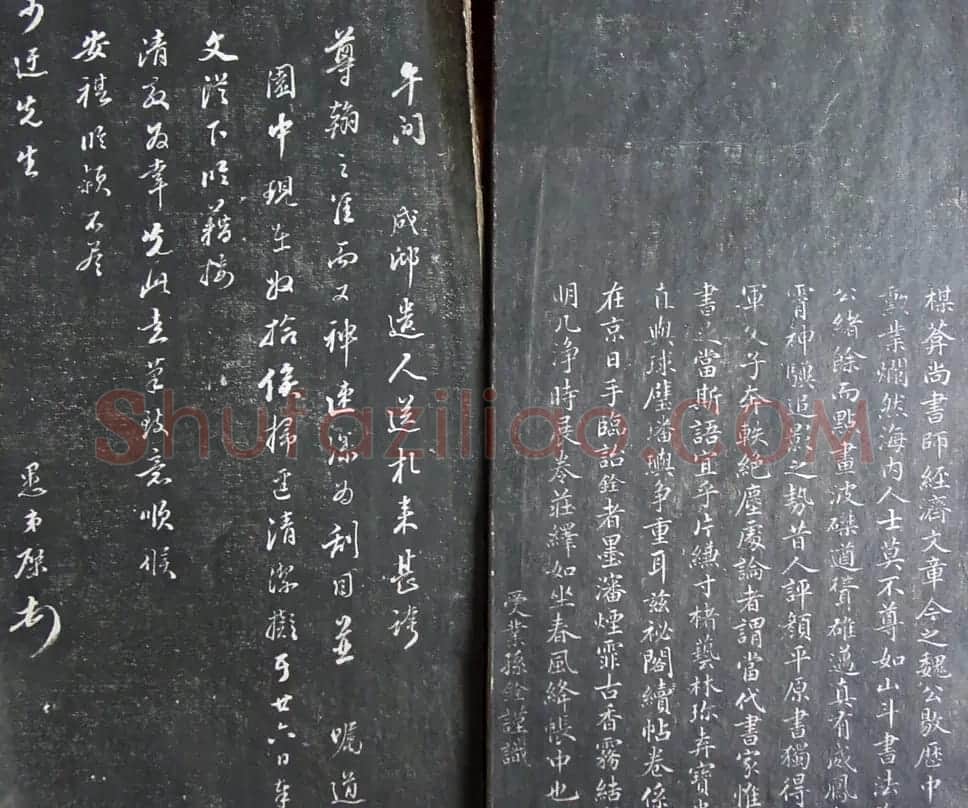 楳葊尚書師經濟文章今之魏公敭歷中
勳業爛然海內人士莫不尊如山斗書法
公緒餘而點畫波磔遒確邁真有威鳳
霄神驥追影之勢昔人評顏平原書獨得
軍父子奔軼絕塵處論者謂當代書家惟
書足當斯語宜乎片縑寸楮藝林珍弆寶
直與球璧璠璵爭重耳茲祕閣續帖卷係
在京日手臨詒銓者墨瀋煙霏古香霧結
明几淨時展卷莊繹如坐春風絳帳中也
受業孫銓謹識
午間 成邸遣人送札來甚誇
尊翰之佳而又神速深為刮目並 囑道
園中現在收拾俟掃清潔擬于廿六日奉
文從下臨藉接
清教為幸先此走筆致意順候
安祺臨穎不盡
少迂先生
愚弟
Shufaziliao.COM